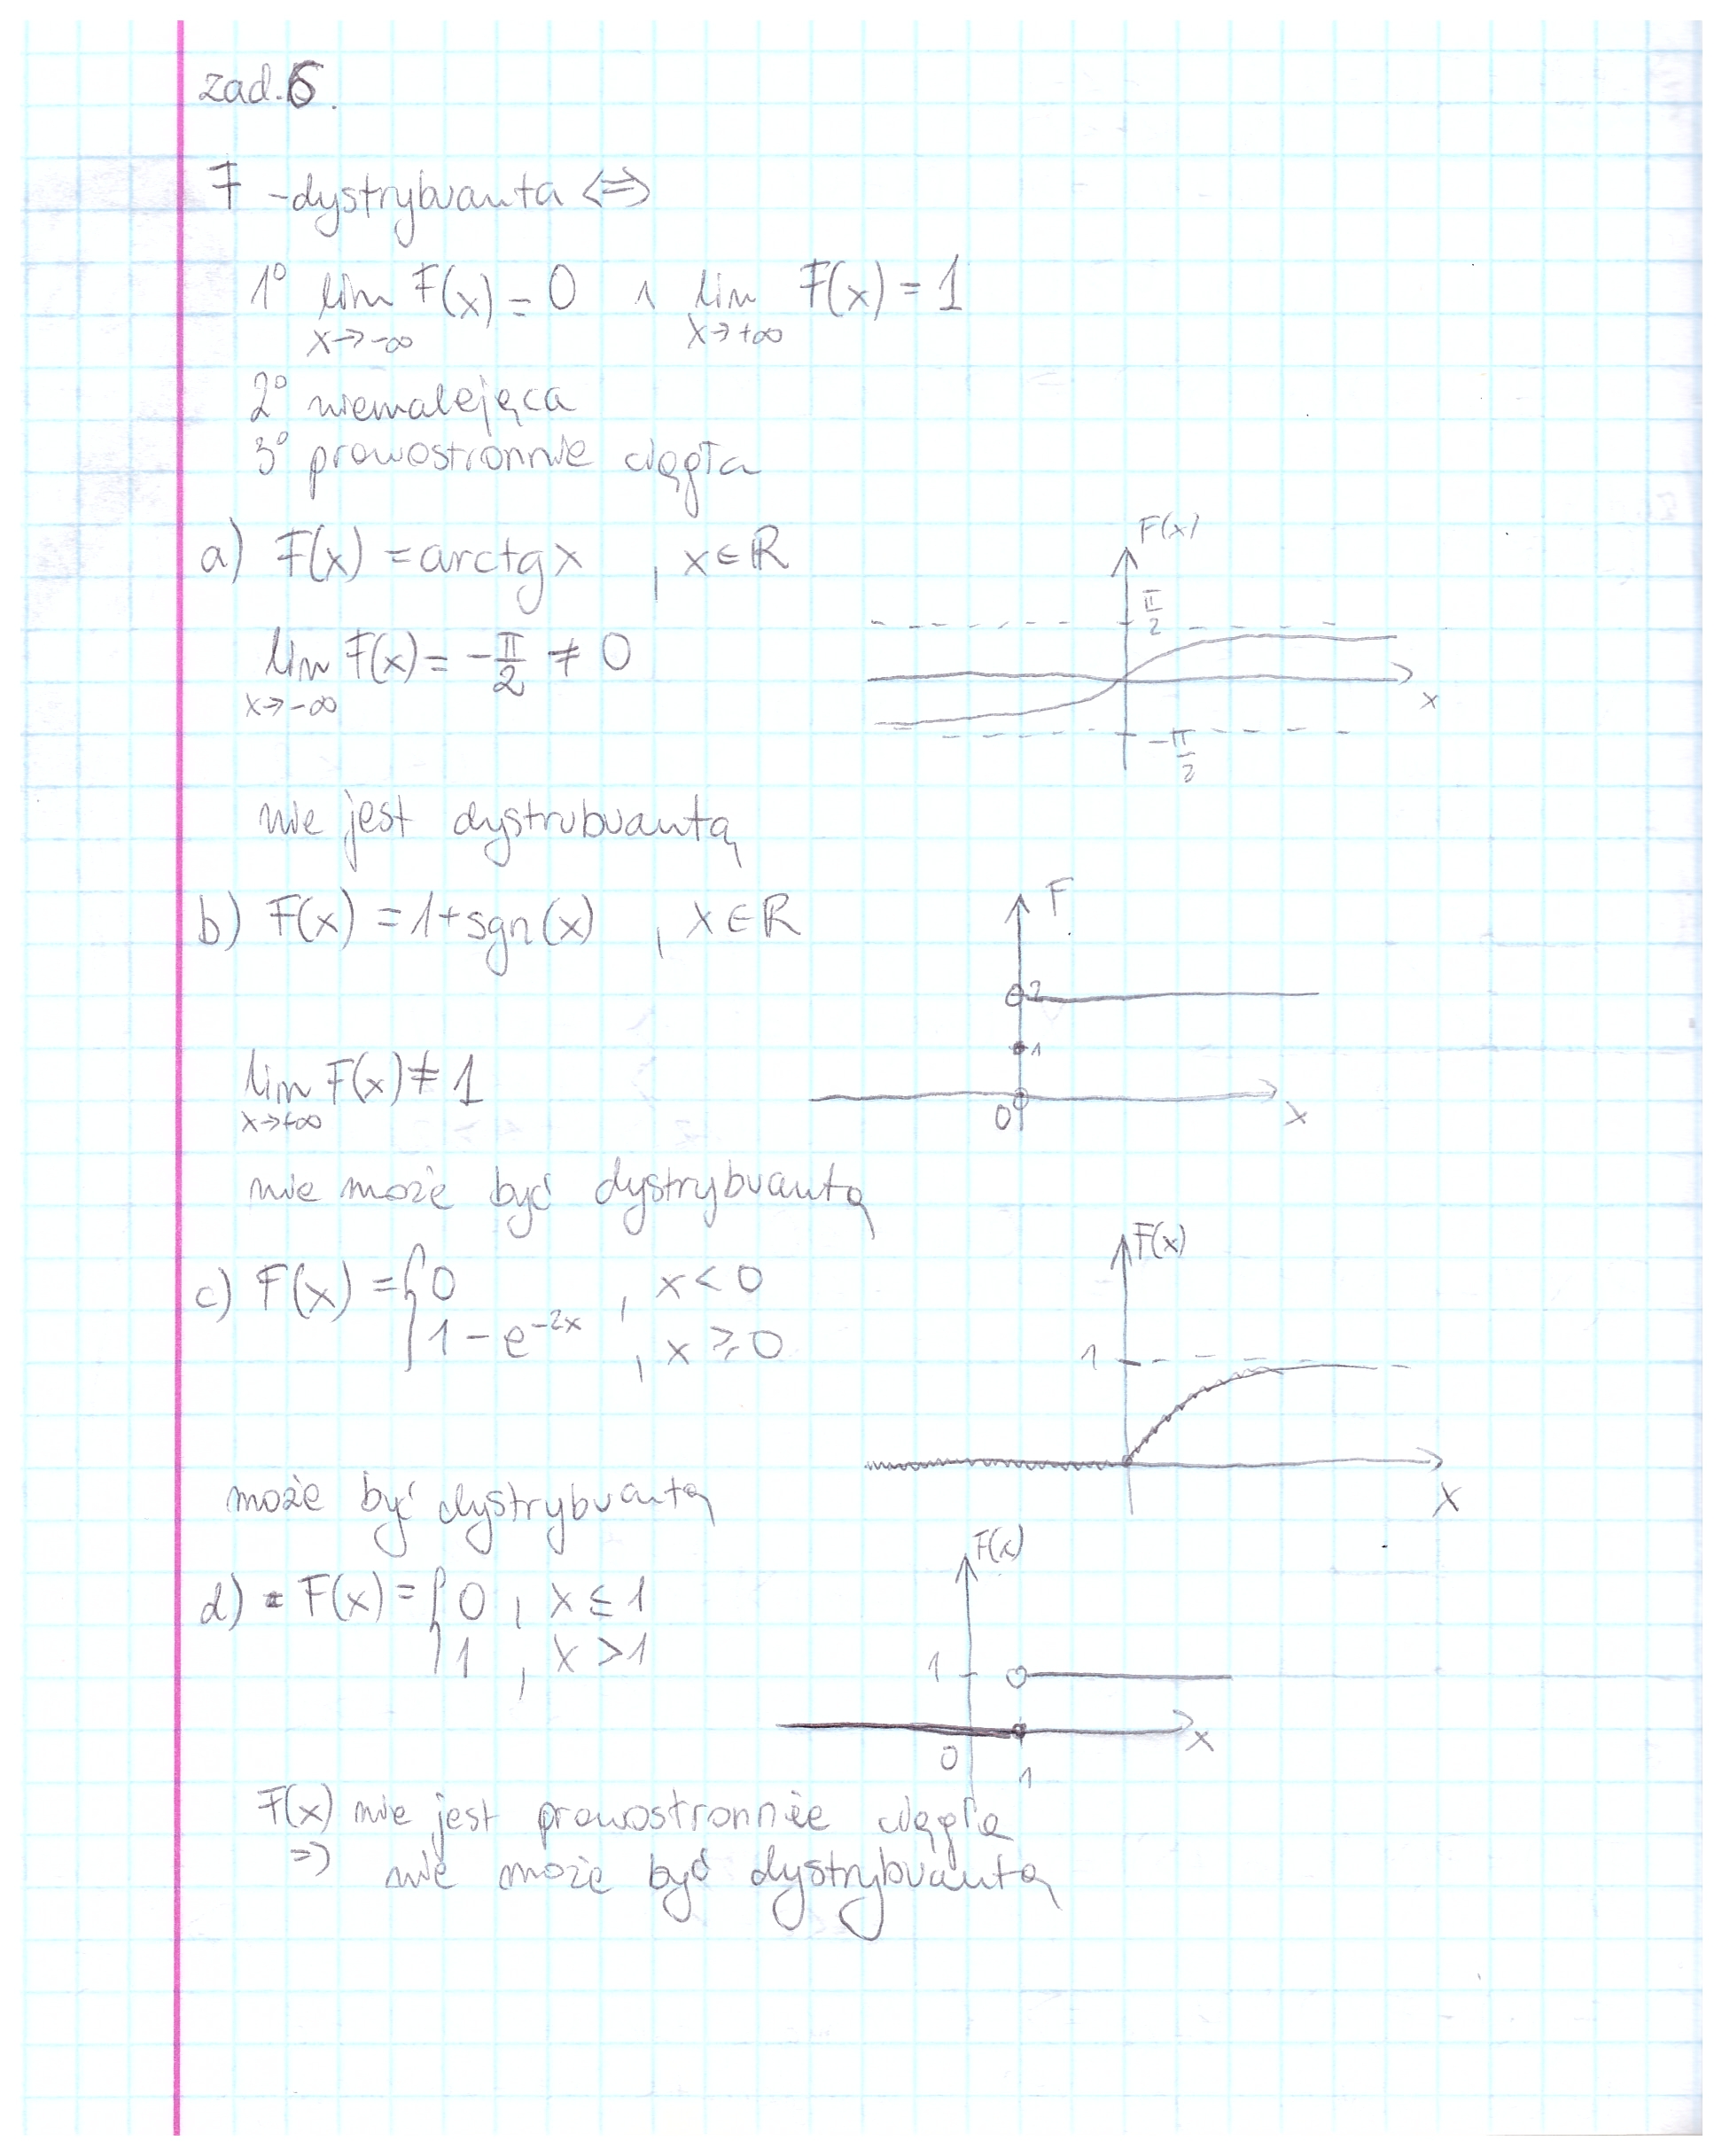 zad. 6.
F - dystrybuanta ⇔
1° lim F(x) = 0 ∧ lim F(x) = 1
x→-∞ x→+∞
2° niemalejąca
3° prawostronnie ciągła
a) F(x) = arctg x , x∈ℝ
F(x)
π/2
lim F(x) = -π/2 ≠ 0
x→-∞
x
-π/2
nie jest dystrubuantą
b) F(x) = 1+sgn(x) , x∈ℝ
F
2
1
lim F(x) ≠ 1
x→+∞
0 x
nie może być dystrybuantą
F(x)
c) F(x) = { 0 , x < 0
1 - e^{-2x} , x ≥ 0
1
x
może być dystrybuantą
F(x)
d) F(x) = { 0 , x ≤ 1
1 , x > 1
1
0 1 x
F(x) nie jest prawostronnie ciągła
⇒ nie może być dystrybuantą